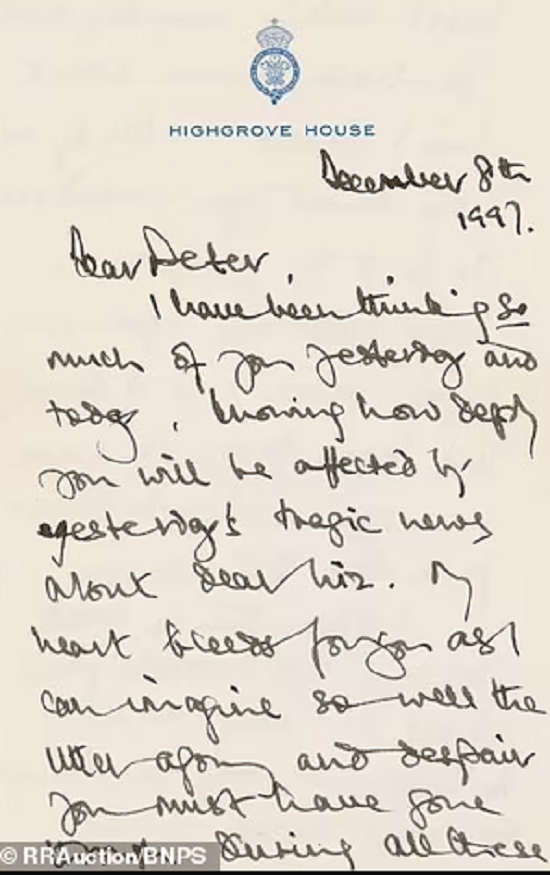 HIGHGROVE HOUSE
December 8th
1997.
Dear Peter,
I have been thinking so
much of you yesterday and
today, knowing how deeply
you will be affected by
yesterday's tragic news
about dear Liz. My
heart bleeds for you as I
can imagine so well the
utter agony and despair
you must have gone
during all these
© RRAuction/BNPS